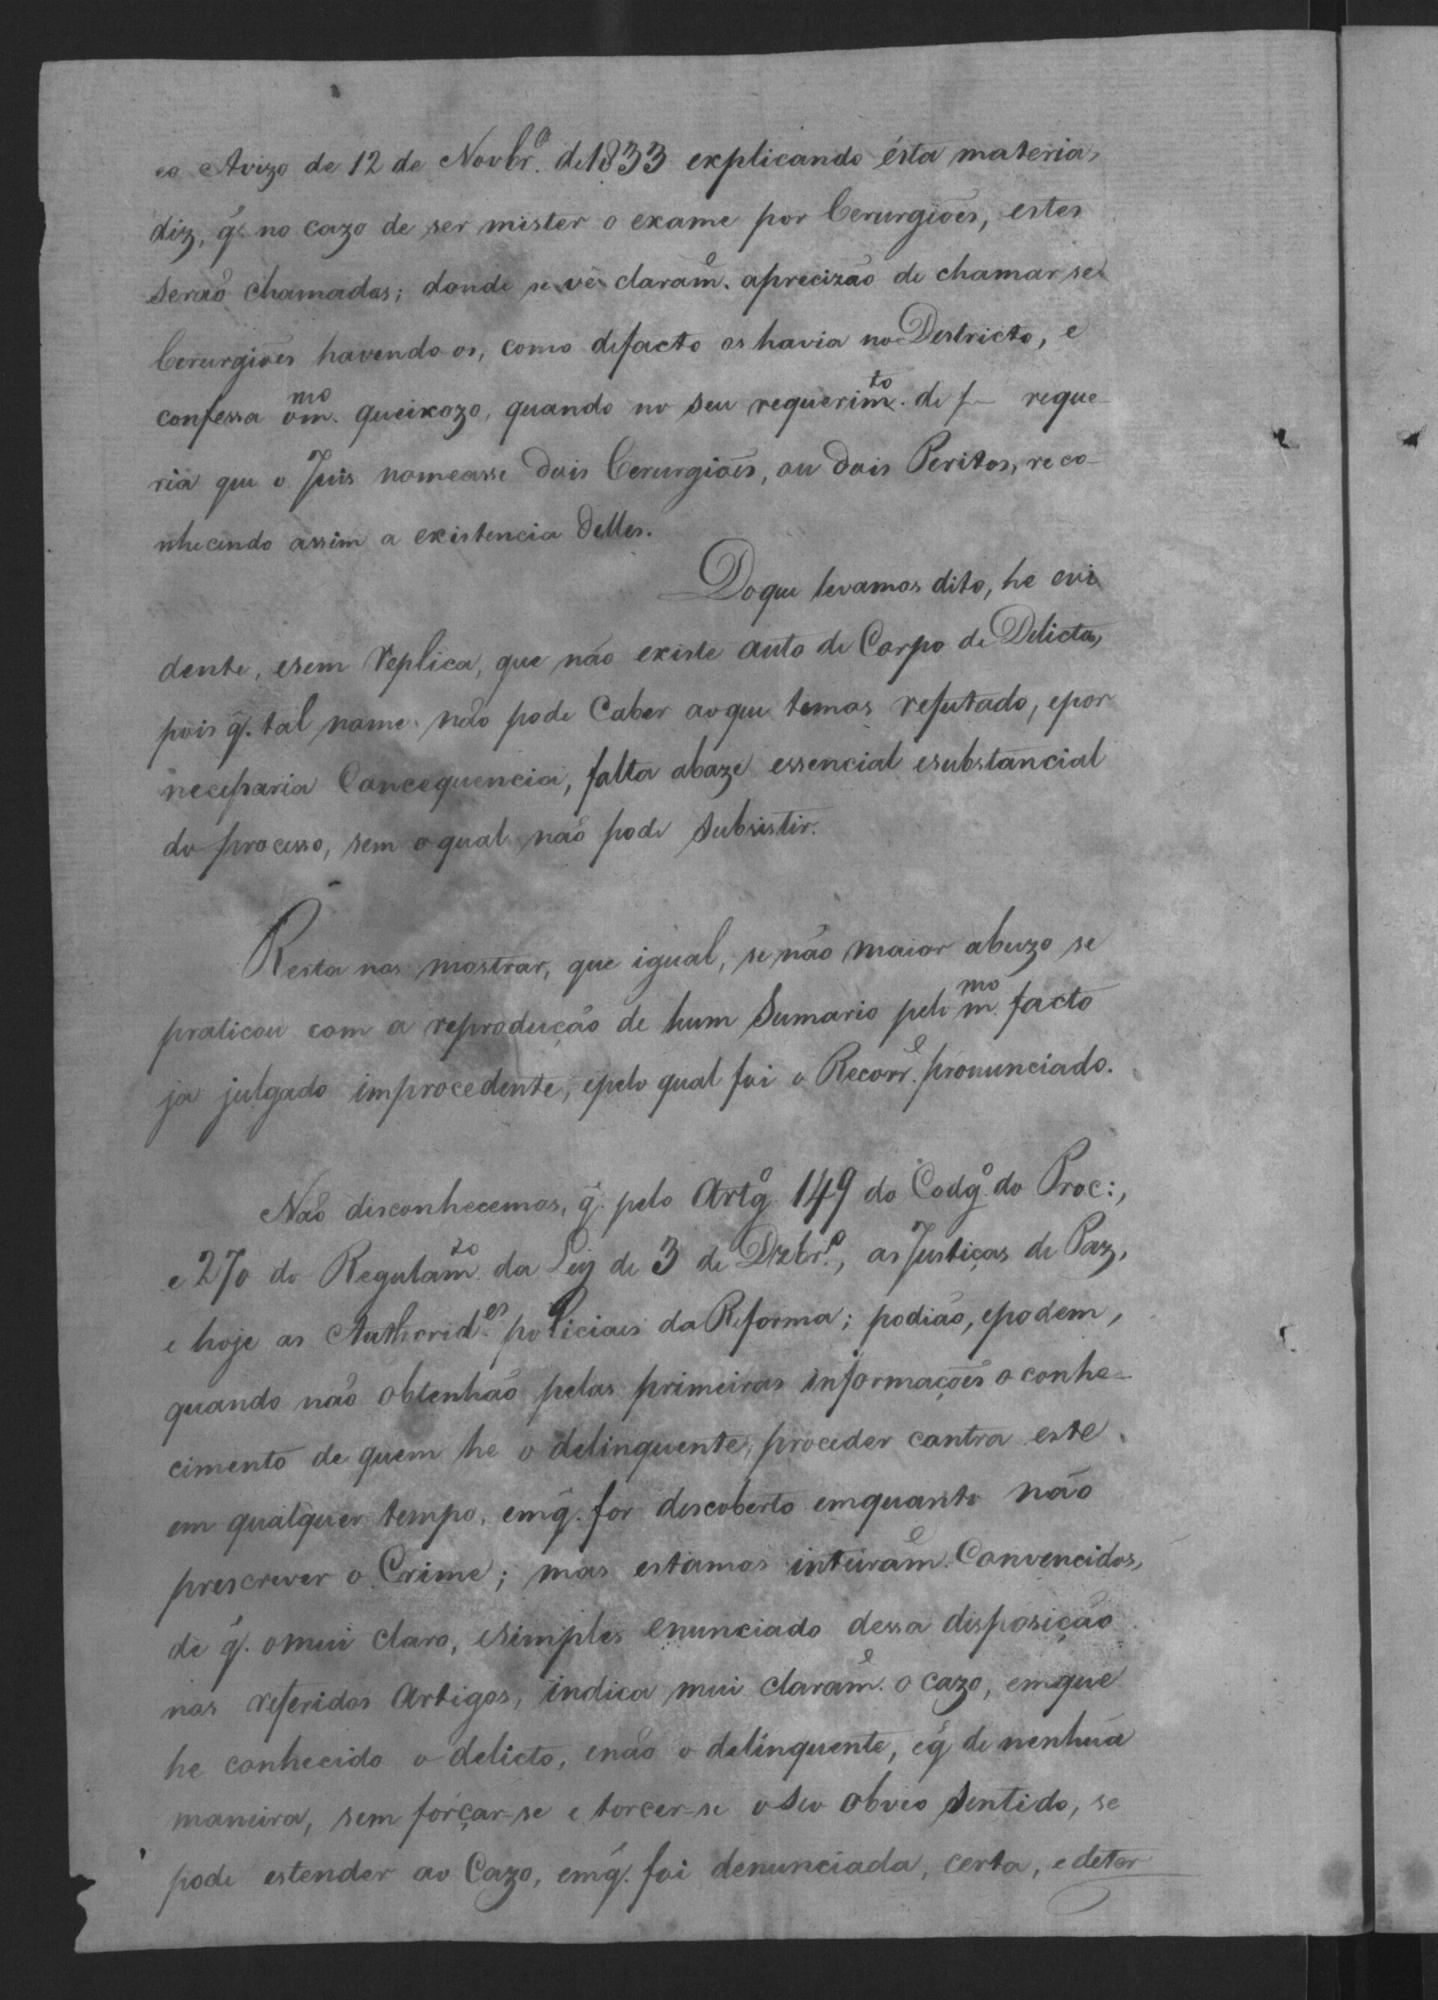 eo Avizo de 12 de Novbr.º de 1833 explicando ésta materia,
diz, q̃. no cazo de ser mister o exame por Cerurgioẽs, estes
Seraõ chamados; donde se vê claram.e aprecizaõ de chamar se
Cerurgioẽs havendo os, como defacto os havia no Destricto, e
confessa om.mo queixozo, quando no seu requerim.to de f— reque-
ria que o Juis nomeasse dois Cerurgioẽs, ou dois Peritos, reco-
nhecendo assim a existencia delles.
Doque levamos dito, he evi
dente, esem replica, que não existe auto de Corpo de Delicto,
pois q̃. tal nome não pode Caber aoque temos refutado, epor
necessaria Concequencia, falta abaze essencial esubstancial
do processo, sem o qual naõ pode Subsistir.
Resta nos mostrar, que igual, se não maior abuzo se
praticou com a reprodução de hum Sumario pelo m.mo facto
ja julgado improcedente, epelo qual foi o Recorr.e pronunciado.
Naõ desconhecemos, q̃. pelo Artgº 149 do Codgº do Proc:,
e 270 do Regulam.to da Ley de 3 de Dzbr.º, as Justiças de Paz,
e hoje as Authorid.es policiais da Reforma; podiaõ, epodem,
quando naõ obtenhaõ pelas primeiras informaçoẽs o conhe-
cimento de quem he o delinquente, proceder contra este
em qualquer tempo, emq̃. for descoberto emquanto não
prescrever o Crime; mas estamos inteiram.e Convencidos,
de q̃. omui claro, esimples enunciado dessa disposição
nos referidos Artigos, indica mui claram.e o cazo, emque
he conhecido o delicto, enaõ o delinquente, eq̃ de nenhuã
maneira, sem forçar-se e torcer-se o seu obveo Sentido, se
pode estender ao Cazo, emq̃. foi denunciada, certa, e deter